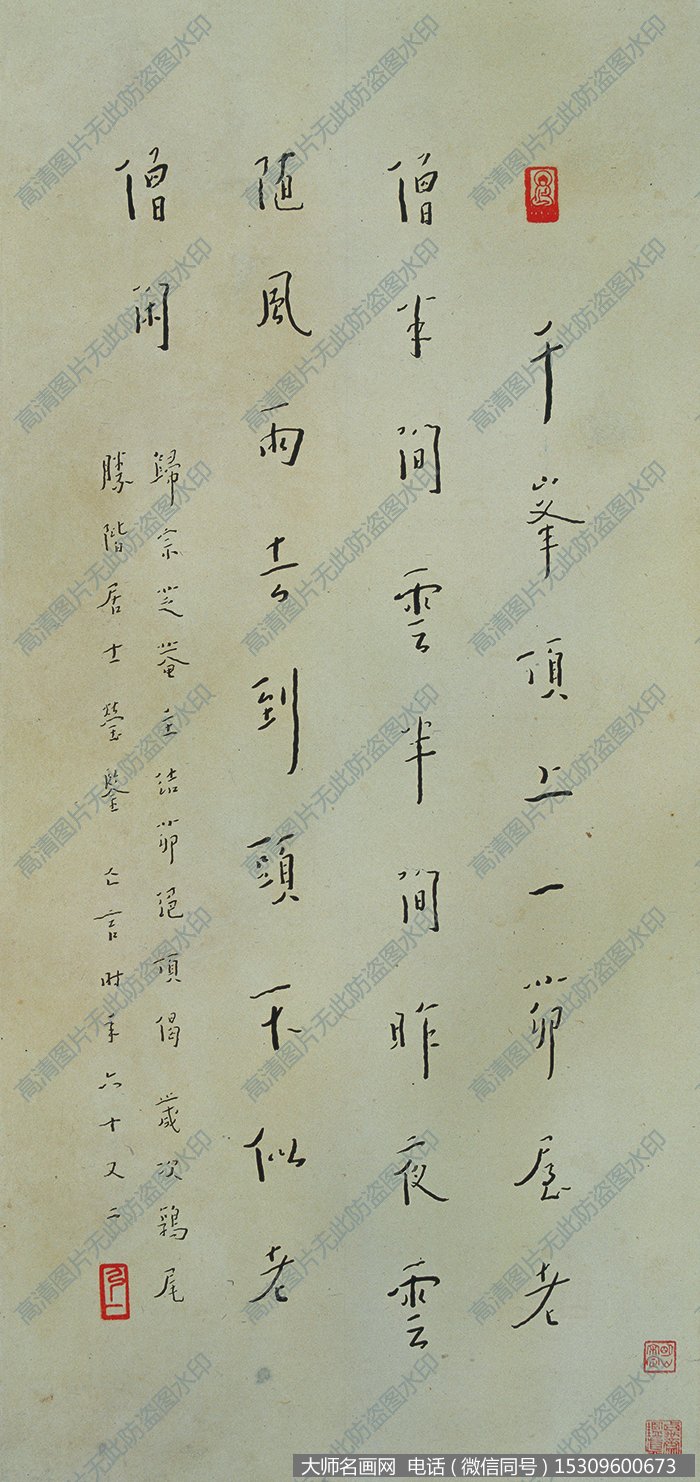 千峯頂上一茆屋老
僧半間雲半間昨夜雲
随風雨去到頭不似老
僧閑
歸宗芝菴主結茆絕頂偈 歲次鶉尾
勝階居士瑩鑒 亡言时年六十又二
高清图片无此防盗图水印
大师名画网 电话（微信同号）15309600673